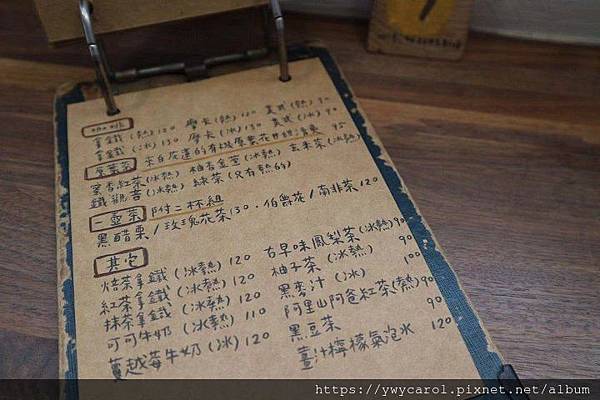 咖啡
拿鐵(熱)120 摩卡(熱)120 美式(熱)90
拿鐵(冰)130 摩卡(冰)130 美式(冰)90
來自花蓮的有機
95
蜜香紅茶(冰熱) 柚香金萱(冰熱) 玄米茶(冰熱)
鐵觀音(冰熱) 綠茶(只有熱的)
一壺茶 附二杯組
黑醋栗/玫瑰花茶130.伯爵花/南非茶120
其它
焙茶拿鐵(冰熱)120
紅茶拿鐵(冰熱)120
抹茶拿鐵(冰熱)120
可可牛奶(冰熱)110
蔓越莓牛奶(冰)120
古早味鳳梨茶(冰熱)90
柚子茶(冰熱)90
黑麥汁(冰)100
阿里山阿爸紅茶(熱)90
黑豆茶90
薑汁檸檬氣泡水120
https://ywycarol.pixnet.net/album